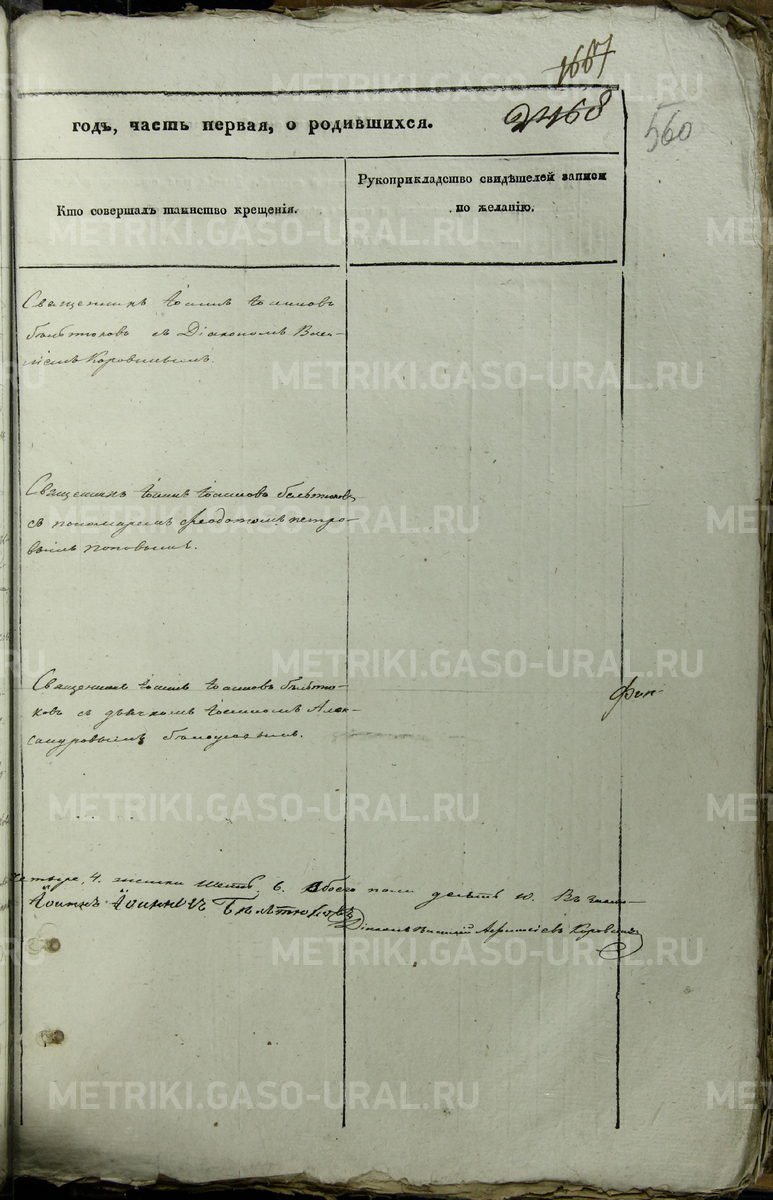 1667
2468
560
годъ, часть первая, о родившихся.
Кто совершалъ таинство крещенія.
Рукоприкладство свидѣтелей записи
по желанію.
Священникъ Іоаннъ Іоанновъ
Бѣлтюковъ съ Діакономъ Васи-
ліемъ Коровинымъ.
Священникъ Іоаннъ Іоанновъ Бѣлтюковъ
съ пономаремъ Ѳеодотомъ Петро-
вымъ Поповымъ.
Священникъ Іоаннъ Іоанновъ Бѣлтю-
ковъ съ дьячкомъ Іоанномъ Алек-
сандровымъ
четыре, 4. женска шесть 6. Обоего пола десять 10. Въ
Іоаннъ Іоанновъ Бѣлтюковъ
Діаконъ Василій Коровинъ
METRIKI.GASO-URAL.RU